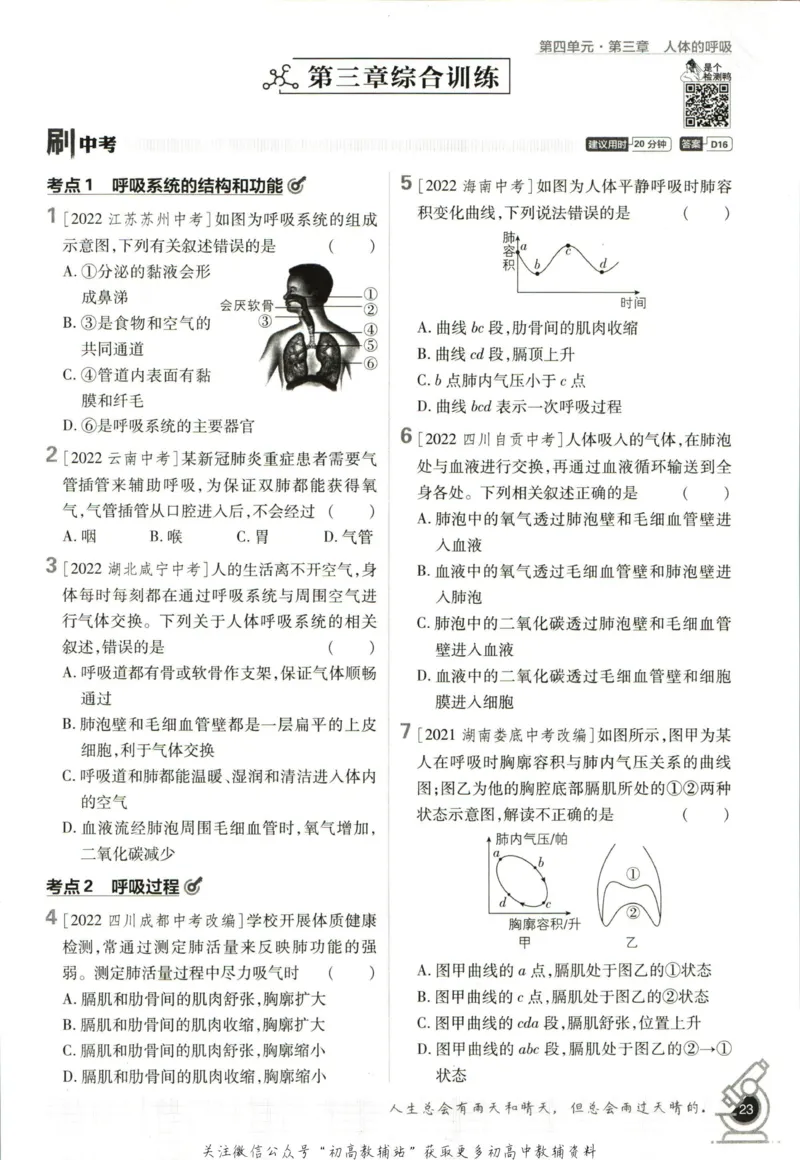 第四单元·第三章 人体的呼吸
第三章综合训练
是个
检测鸭
刷中考
建议用时 20分钟 答案 D16
考点1 呼吸系统的结构和功能
1 [2022 江苏苏州中考]如图为呼吸系统的组成
示意图,下列有关叙述错误的是 ( )
A. ①分泌的黏液会形
成鼻涕
B. ③是食物和空气的
共同通道
C. ④管道内表面有黏
膜和纤毛
D. ⑥是呼吸系统的主要器官
会厌软骨
③
①
②
④
⑤
⑥
2 [2022 云南中考]某新冠肺炎重症患者需要气
管插管来辅助呼吸,为保证双肺都能获得氧
气,气管插管从口腔进入后,不会经过 ( )
A. 咽 B. 喉 C. 胃 D. 气管
3 [2022 湖北咸宁中考]人的生活离不开空气,身
体每时每刻都在通过呼吸系统与周围空气进
行气体交换。下列关于人体呼吸系统的相关
叙述,错误的是 ( )
A. 呼吸道都有骨或软骨作支架,保证气体顺畅
通过
B. 肺泡壁和毛细血管壁都是一层扁平的上皮
细胞,利于气体交换
C. 呼吸道和肺都能温暖、湿润和清洁进入体内
的空气
D. 血液流经肺泡周围毛细血管时,氧气增加,
二氧化碳减少
考点2 呼吸过程
4 [2022 四川成都中考改编]学校开展体质健康
检测,常通过测定肺活量来反映肺功能的强
弱。测定肺活量过程中尽力吸气时 ( )
A. 膈肌和肋骨间的肌肉舒张,胸廓扩大
B. 膈肌和肋骨间的肌肉收缩,胸廓扩大
C. 膈肌和肋骨间的肌肉舒张,胸廓缩小
D. 膈肌和肋骨间的肌肉收缩,胸廓缩小
5 [2022 海南中考]如图为人体平静呼吸时肺容
积变化曲线,下列说法错误的是 ( )
肺容积
a
b
c
d
时间
A. 曲线 bc 段,肋骨间的肌肉收缩
B. 曲线 cd 段,膈顶上升
C. b 点肺内气压小于 c 点
D. 曲线 bcd 表示一次呼吸过程
6 [2022 四川自贡中考]人体吸入的气体,在肺泡
处与血液进行交换,再通过血液循环输送到全
身各处。下列相关叙述正确的是 ( )
A. 肺泡中的氧气透过肺泡壁和毛细血管壁进
入血液
B. 血液中的氧气透过毛细血管壁和肺泡壁进
入肺泡
C. 肺泡中的二氧化碳透过肺泡壁和毛细血管
壁进入血液
D. 血液中的二氧化碳透过毛细血管壁和细胞
膜进入细胞
7 [2021 湖南娄底中考改编]如图所示,图甲为某
人在呼吸时胸廓容积与肺内气压关系的曲线
图;图乙为他的胸腔底部膈肌所处的①②两种
状态示意图,解读不正确的是 ( )
肺内气压/帕
a
b
d
c
胸廓容积/升
甲
①
②
乙
A. 图甲曲线的 a 点,膈肌处于图乙的①状态
B. 图甲曲线的 c 点,膈肌处于图乙的②状态
C. 图甲曲线的 cda 段,膈肌舒张,位置上升
D. 图甲曲线的 abc 段,膈肌处于图乙的②→①
状态
人生总会有雨天和晴天,但总会雨过天晴的。
23
关注微信公众号“初高教辅站”获取更多初高中教辅资料